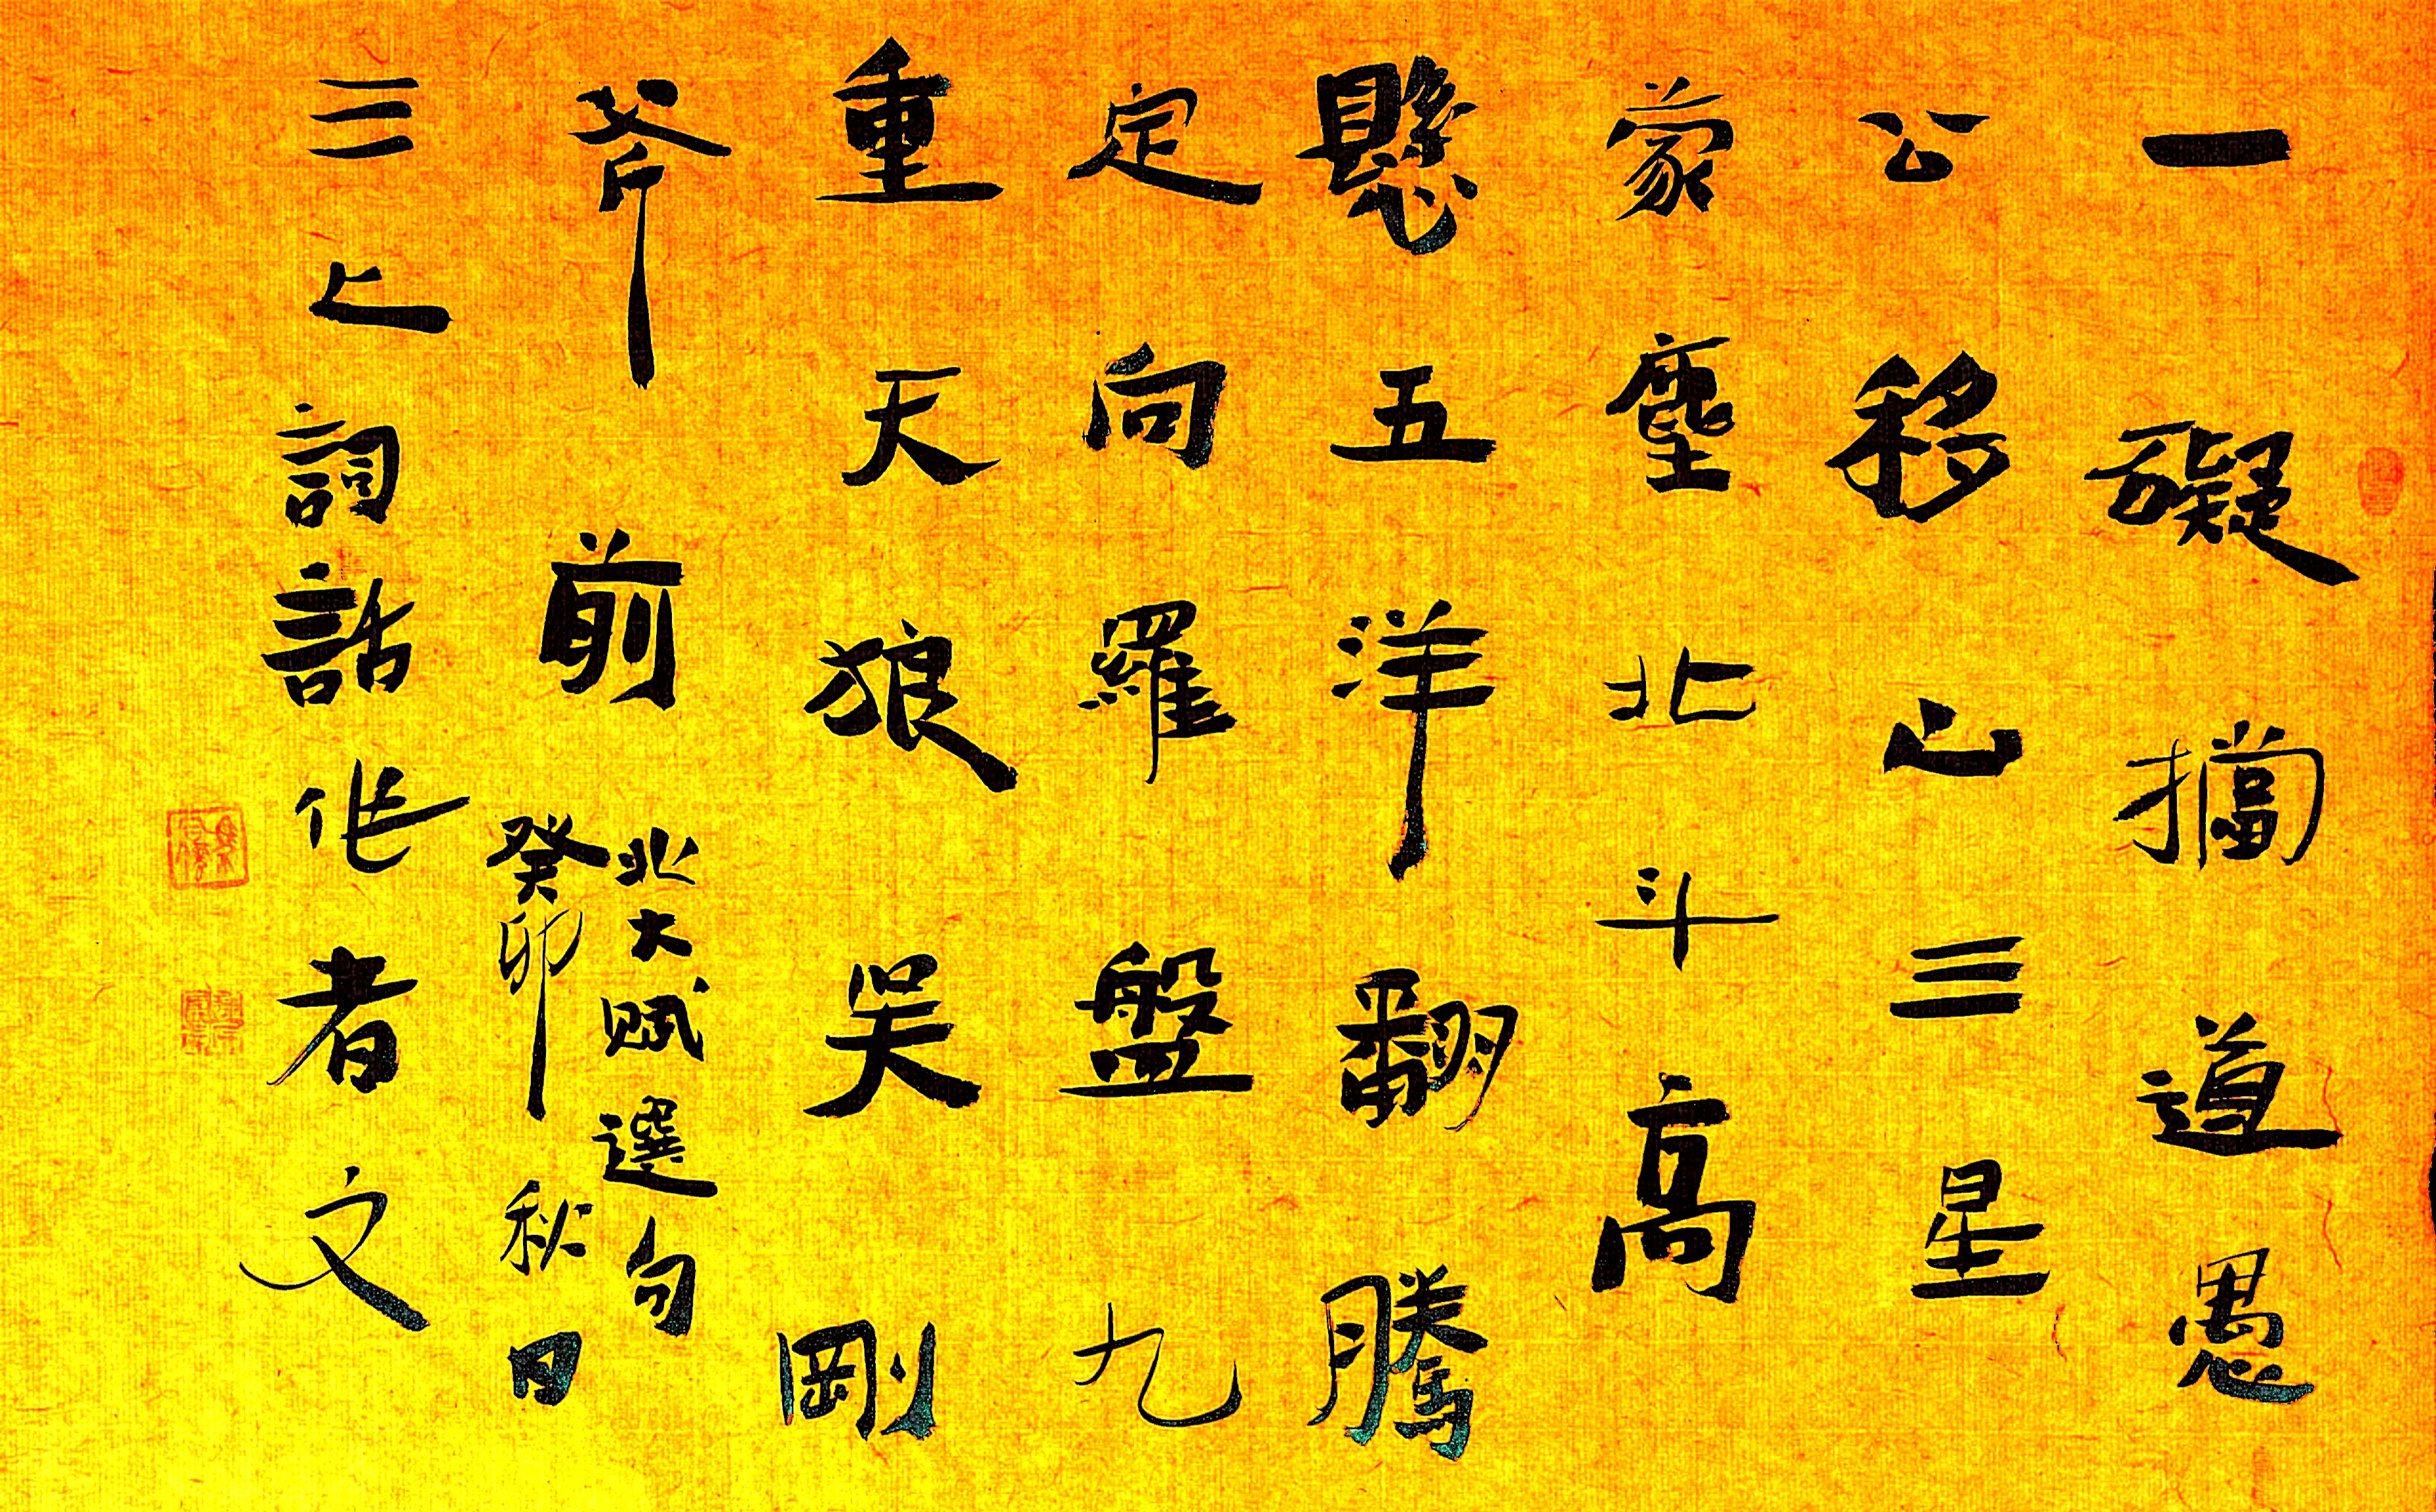 一礙擋道愚
公移山三星
蒙塵北斗高
懸五洋翻騰
定向羅盤九
重天狼吳剛
斧前
北大賦選句
癸卯秋日
三上詞話作者文